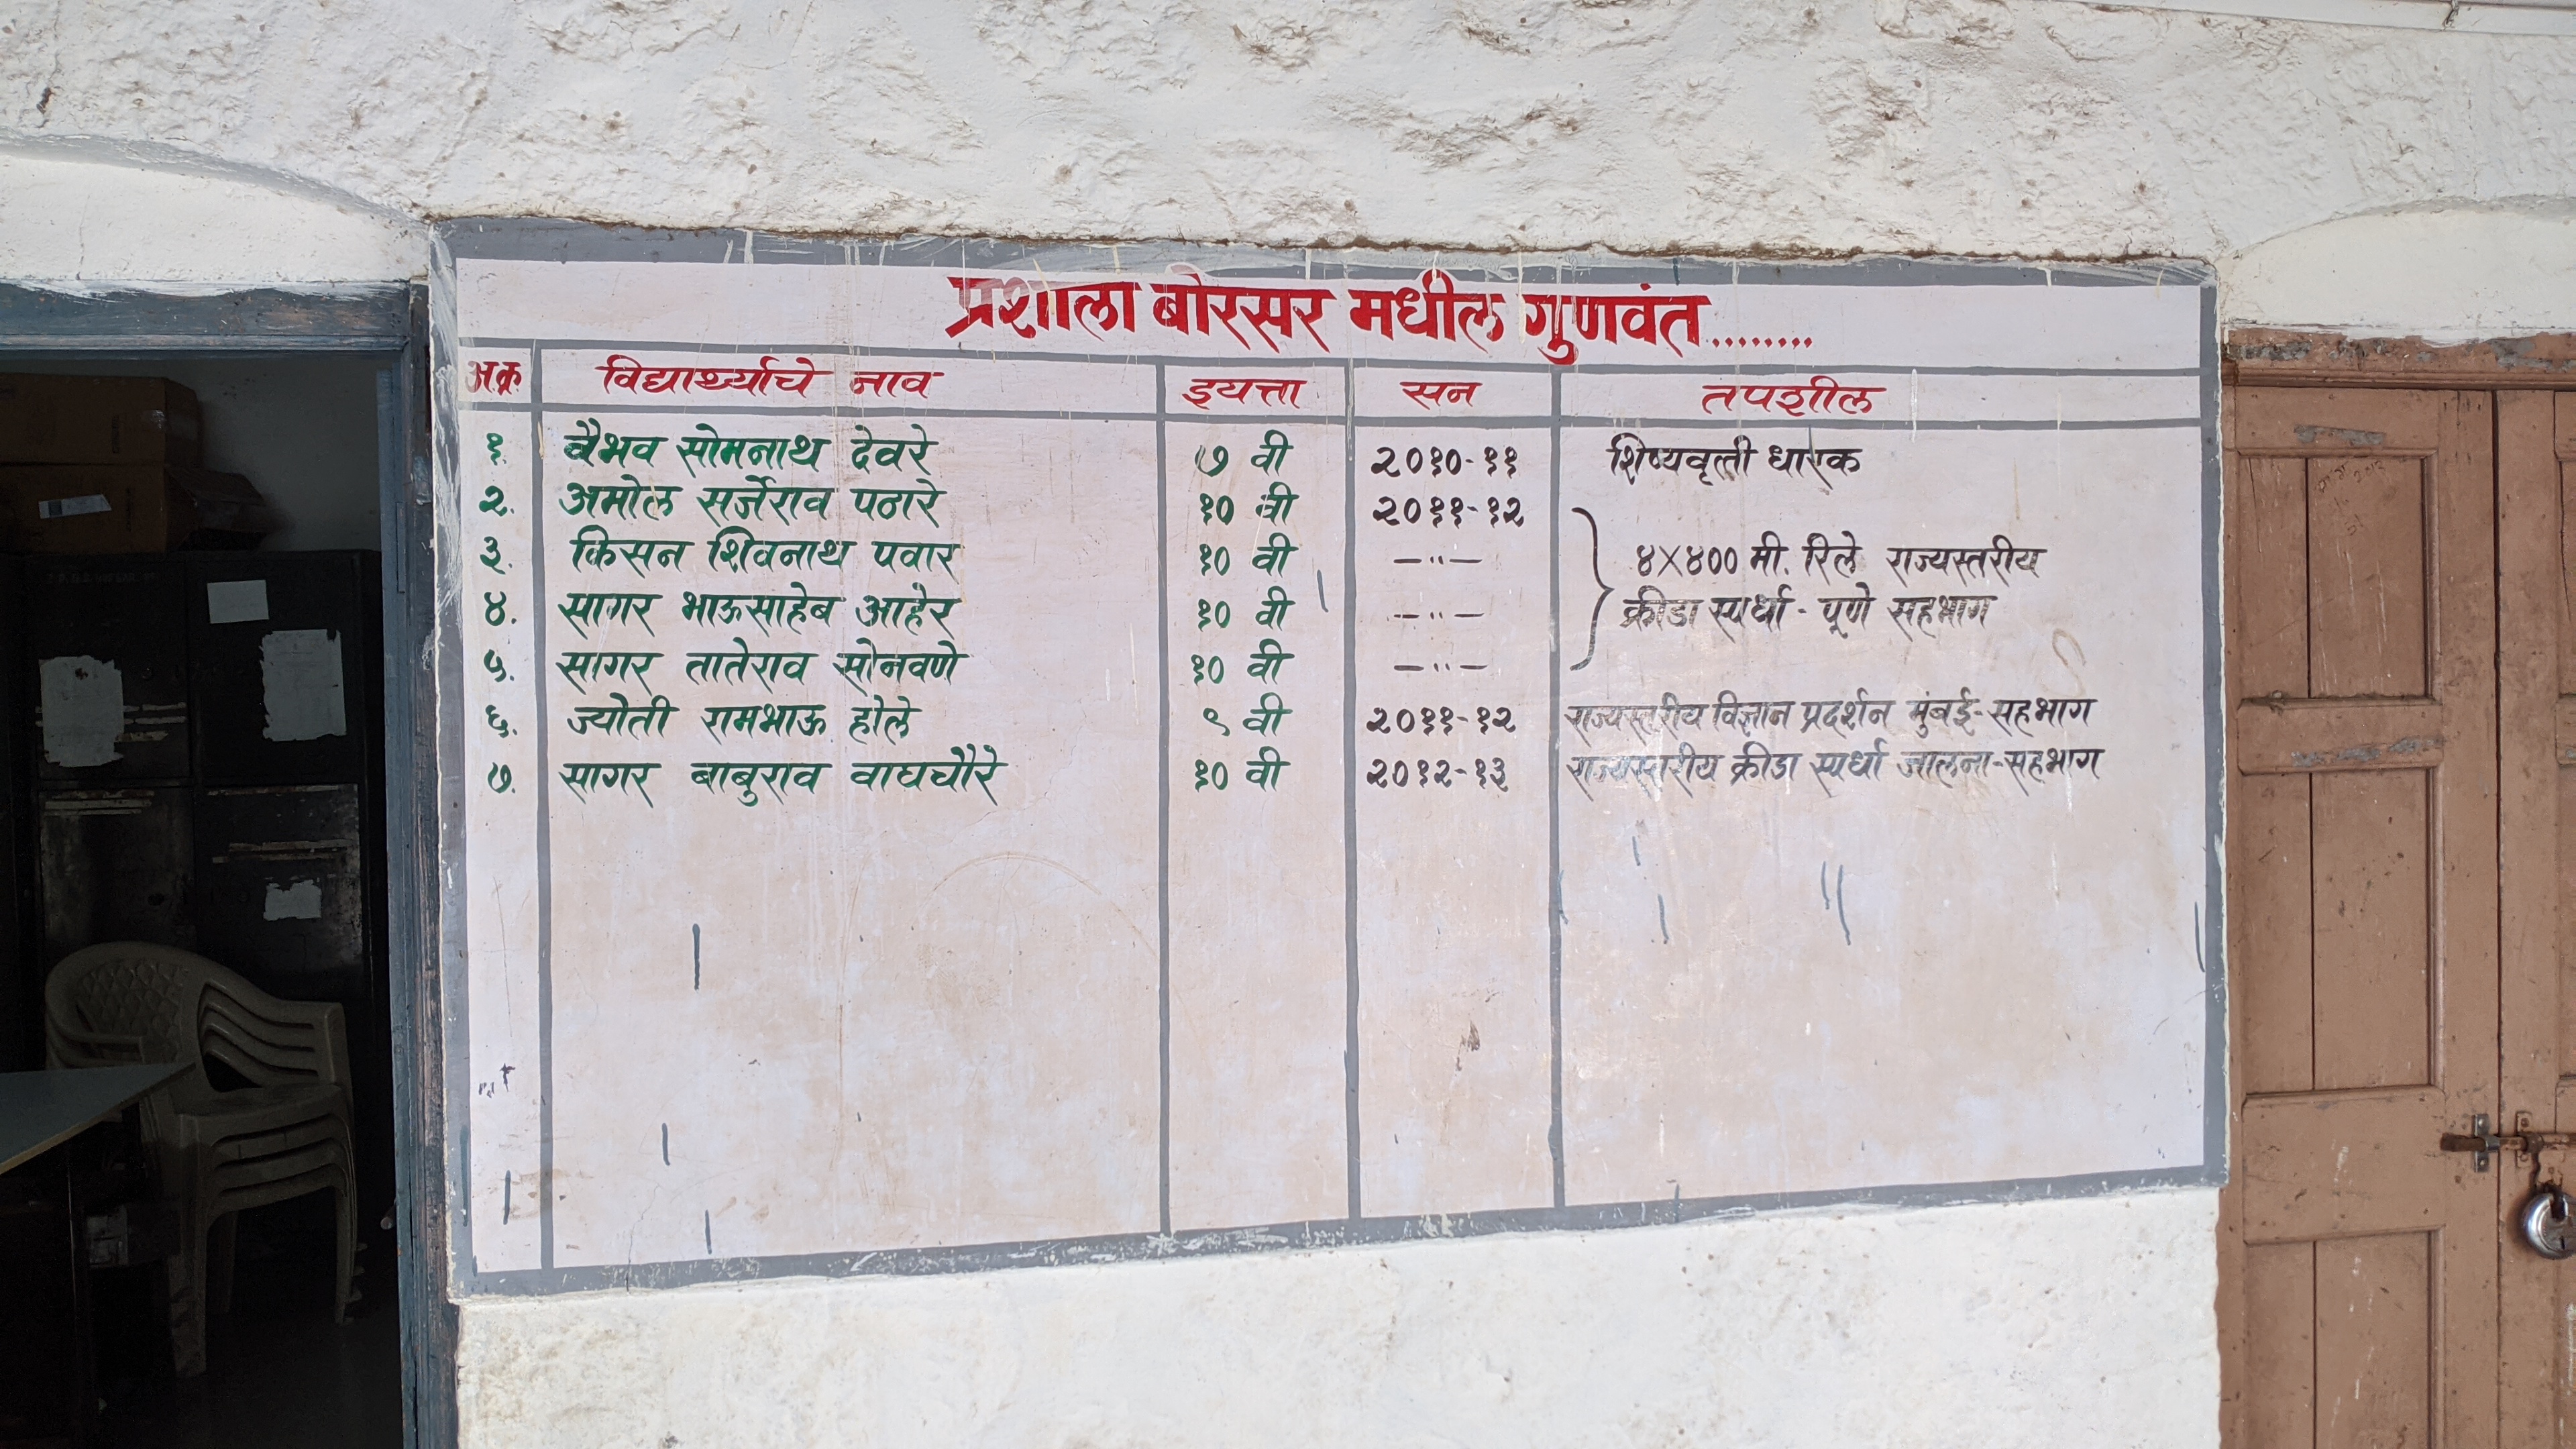 प्रशाला बोरसर मधील गुणवंत........
अ.क्र विद्यार्थ्याचे नाव इयत्ता सन तपशील
१. वैभव सोमनाथ देवरे ७ वी २०१०-११ शिष्यवृत्ती धारक
२. अमोल सर्जेराव पठारे १० वी २०११-१२
३. किसन शिवनाथ पवार १० वी —"— ४X४०० मी. रिले राज्यस्तरीय
४. सागर भाऊसाहेब आहेर १० वी —"— क्रीडा स्पर्धा - पूणे सहभाग
५. सागर तातेराव सोनवणे १० वी —"—
६. ज्योती रामभाऊ होले ९ वी २०११-१२ राज्यस्तरीय विज्ञान प्रदर्शन मुंबई-सहभाग
७. सागर बाबुराव वाघचौरे १० वी २०१२-१३ राज्यस्तरीय क्रीडा स्पर्धा जालना-सहभाग